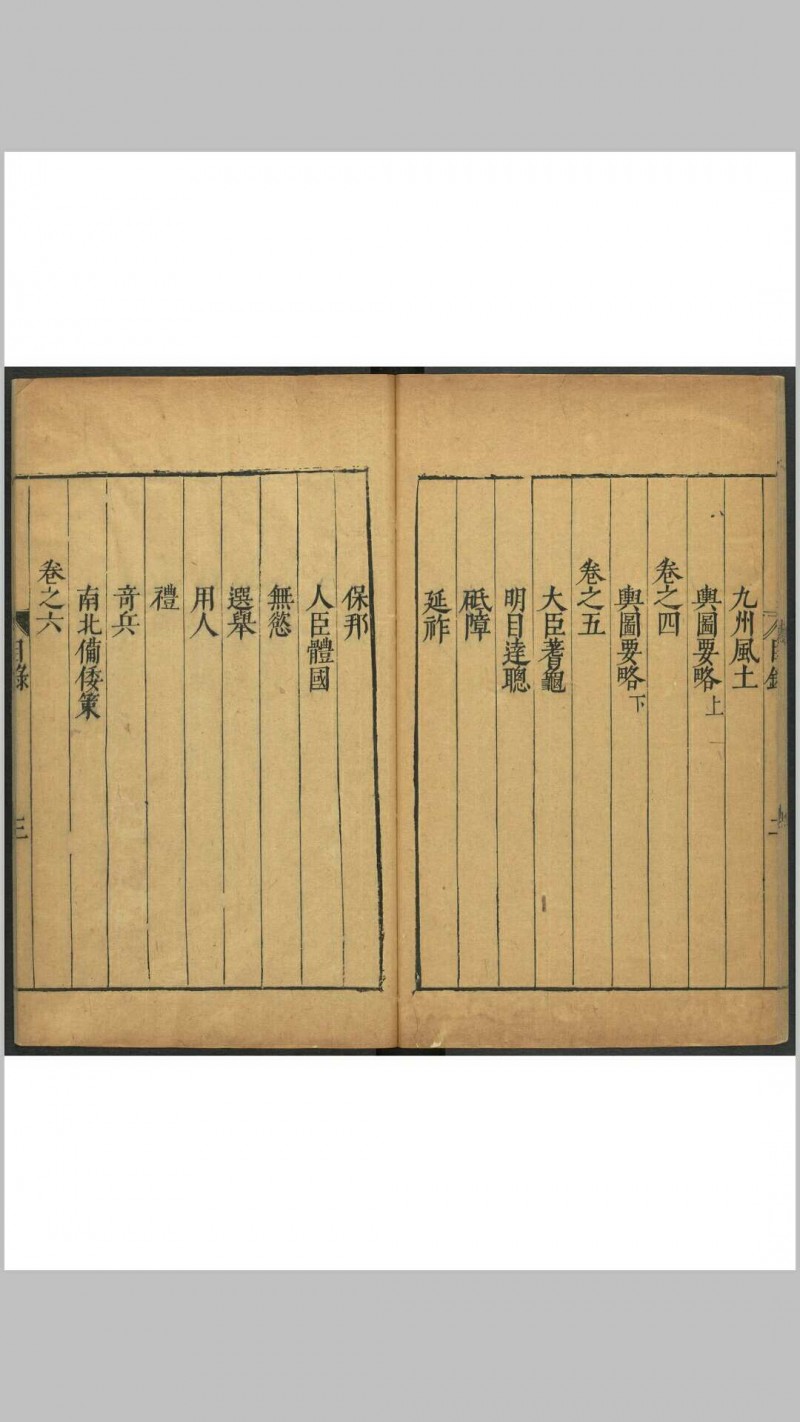 九州風土
輿圖要略上
卷之四
輿圖要略下
卷之五
大臣蓍龜
明目達聰
砥障
延祚
保邦
人臣體國
無慾
選舉
用人
禮
竒兵
南北備倭策
卷之六
目錄
三